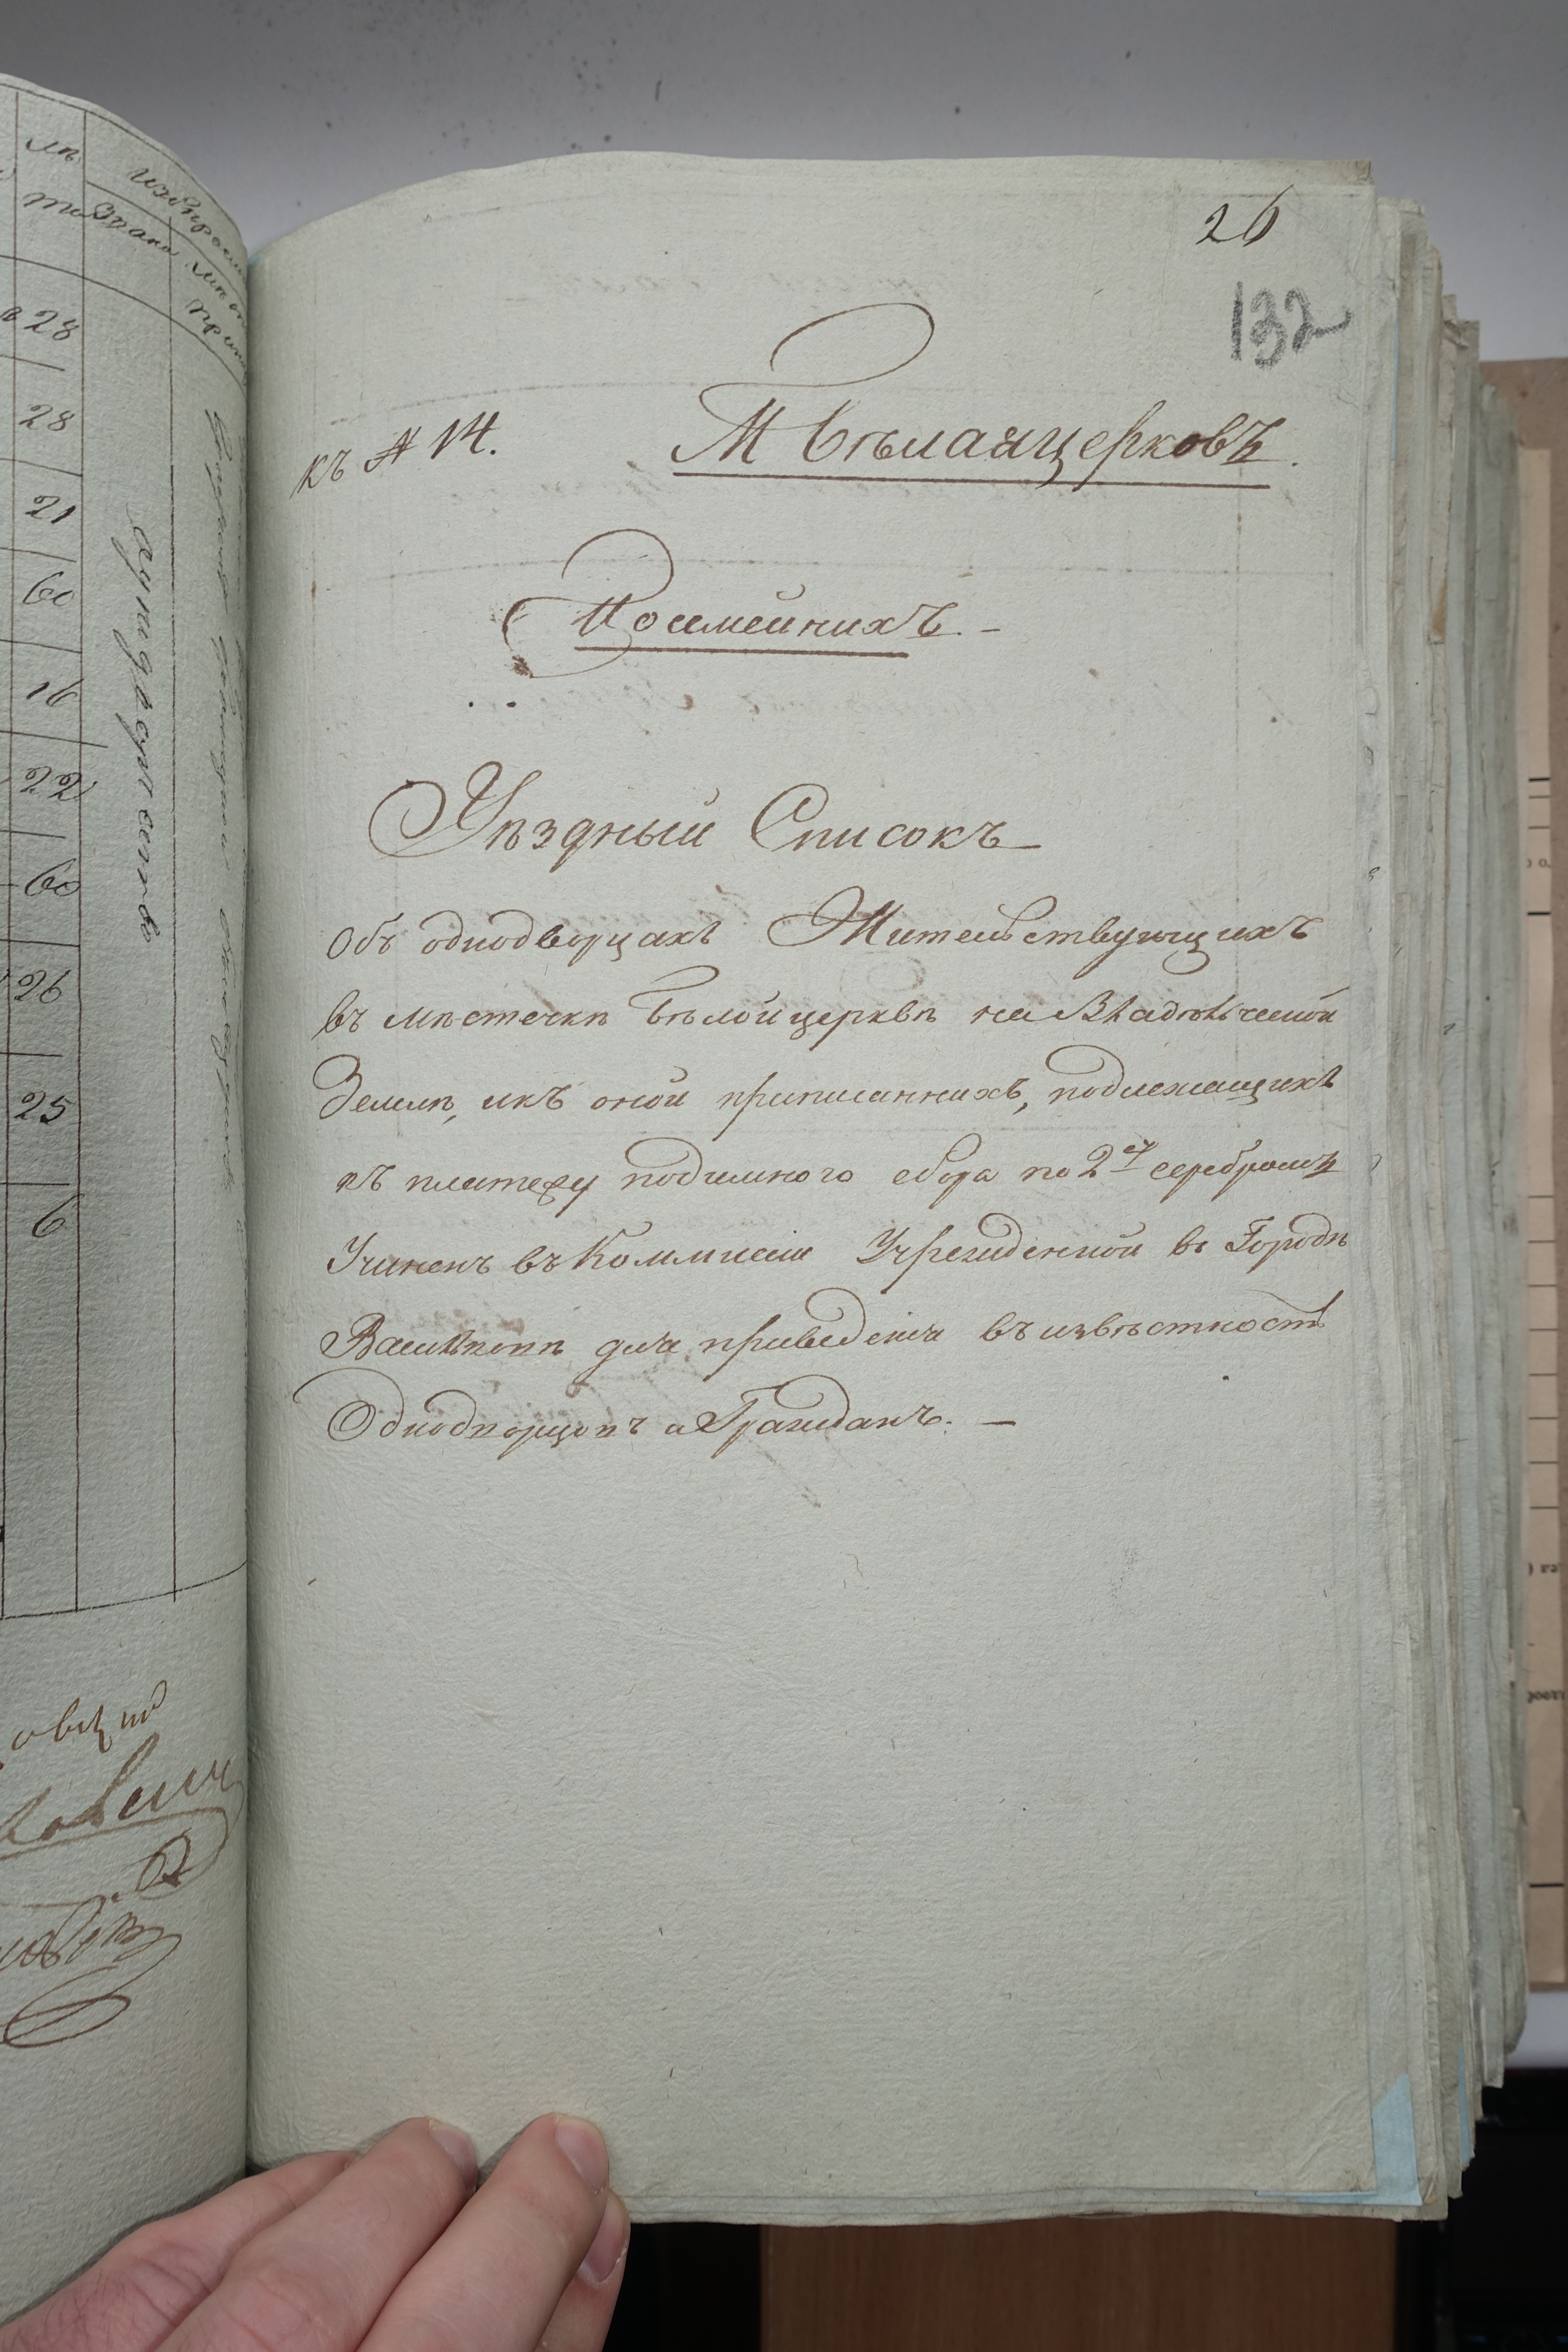 26
132
къ А 14.
М Бѣлаяцерковъ.
Посмейнихъ. -
Уѣздный Списокъ
Объ однодворцахъ Жительствующихъ
въ мѣстечкѣ Бѣлойцерквѣ на Владѣльческой
Земли, икъ оной приписаннихъ, подлежащихъ
къ платежу подимного сбора по 2 серебромъ
Учиненъ въ Коммисіи Учрежденной въ Городѣ
Васильковѣ для приведенія въ извѣстность
Однодворцовъ и Гражданъ. —
28
28
21
60
16
22
60
26
25
6